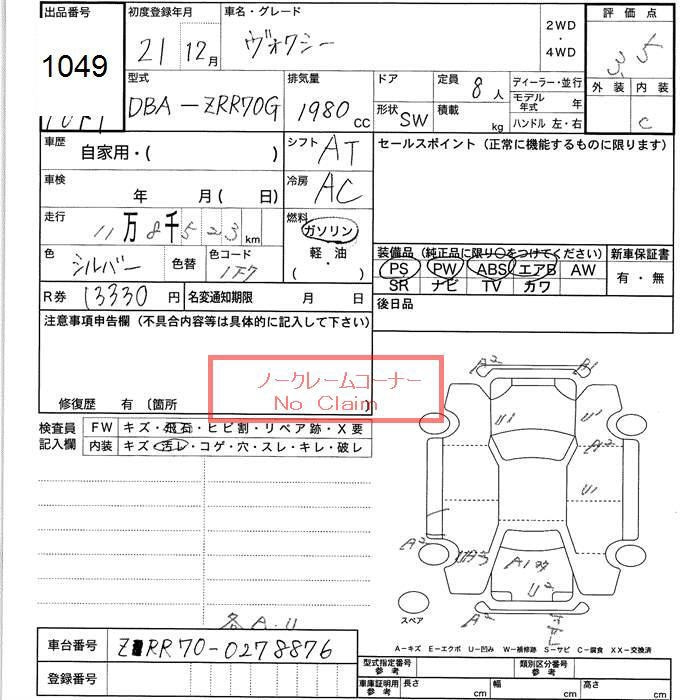 出品番号 初度登録年月 車名・グレード 評価点
1049 21 12月 ヴォクシー 2WD ・ 4WD 3.5
型式 排気量 ドア 定員 8人 ディーラー・並行 外装 内装
DBA-ZRR70G 1980 cc 形状 SW 積載 kg モデル年式 年 C
ハンドル 左・右
車歴 自家用・( ) シフト AT セールスポイント (正常に機能するものに限ります)
車検 年 月( 日) 冷房 AC
走行 11万8千523km 燃料 ガソリン
軽・油
( ・ )
色 シルバー 色替 色コード 1F7 装備品 (純正品に限り○をつけてください) 新車保証書
PS PW ABS エアB AW 有・無
SR ナビ TV カワ
R券 13330円 名変通知期限 月 日 後日品
注意事項申告欄 (不具合内容等は具体的に記入して下さい)
ノークレームコーナー
No Claim
修復歴 有 〔箇所
検査員 FW キズ・飛石・ヒビ割・リペア跡・X要
記入欄 内装 キズ・汚レ・コゲ・穴・スレ・キレ・破レ
A2 B1
U1 U1
A2
U1
A2 UA3 A1 U2
A2
スペア
各A.U
A-キズ E-エクボ U-凹み W-補修跡 S-サビ C-腐食 XX-交換済
車台番号 ZRR70-0278876
型式指定番号 参考 類別区分番号 参考
登録番号 車庫証明用 参考 長さ cm 幅 cm 高さ cm